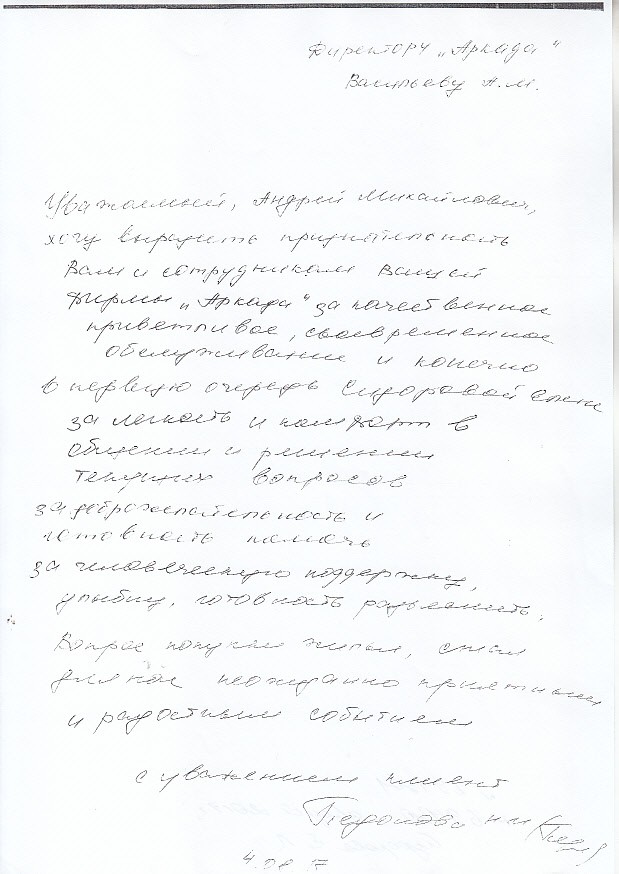 Директору „Аркада“
Васильеву А.М.
Уважаемый, Андрей Михайлович,
хочу выразить признательность
Вам и сотрудникам Вашей
фирмы „Аркада“ за качественное
приветливое, своевременное
обслуживание и конечно
в первую очередь Сидоровой Елене
за легкость и комфорт в
общении и решении
текущих вопросов
за доброжелательность и
готовность помочь
за человеческую поддержку,
улыбку, готовность разъяснить.
Вопрос покупки жилья, стал
для нас неожиданно приятным
и радостным событием
с уважением клиент
Н И
4.08 17